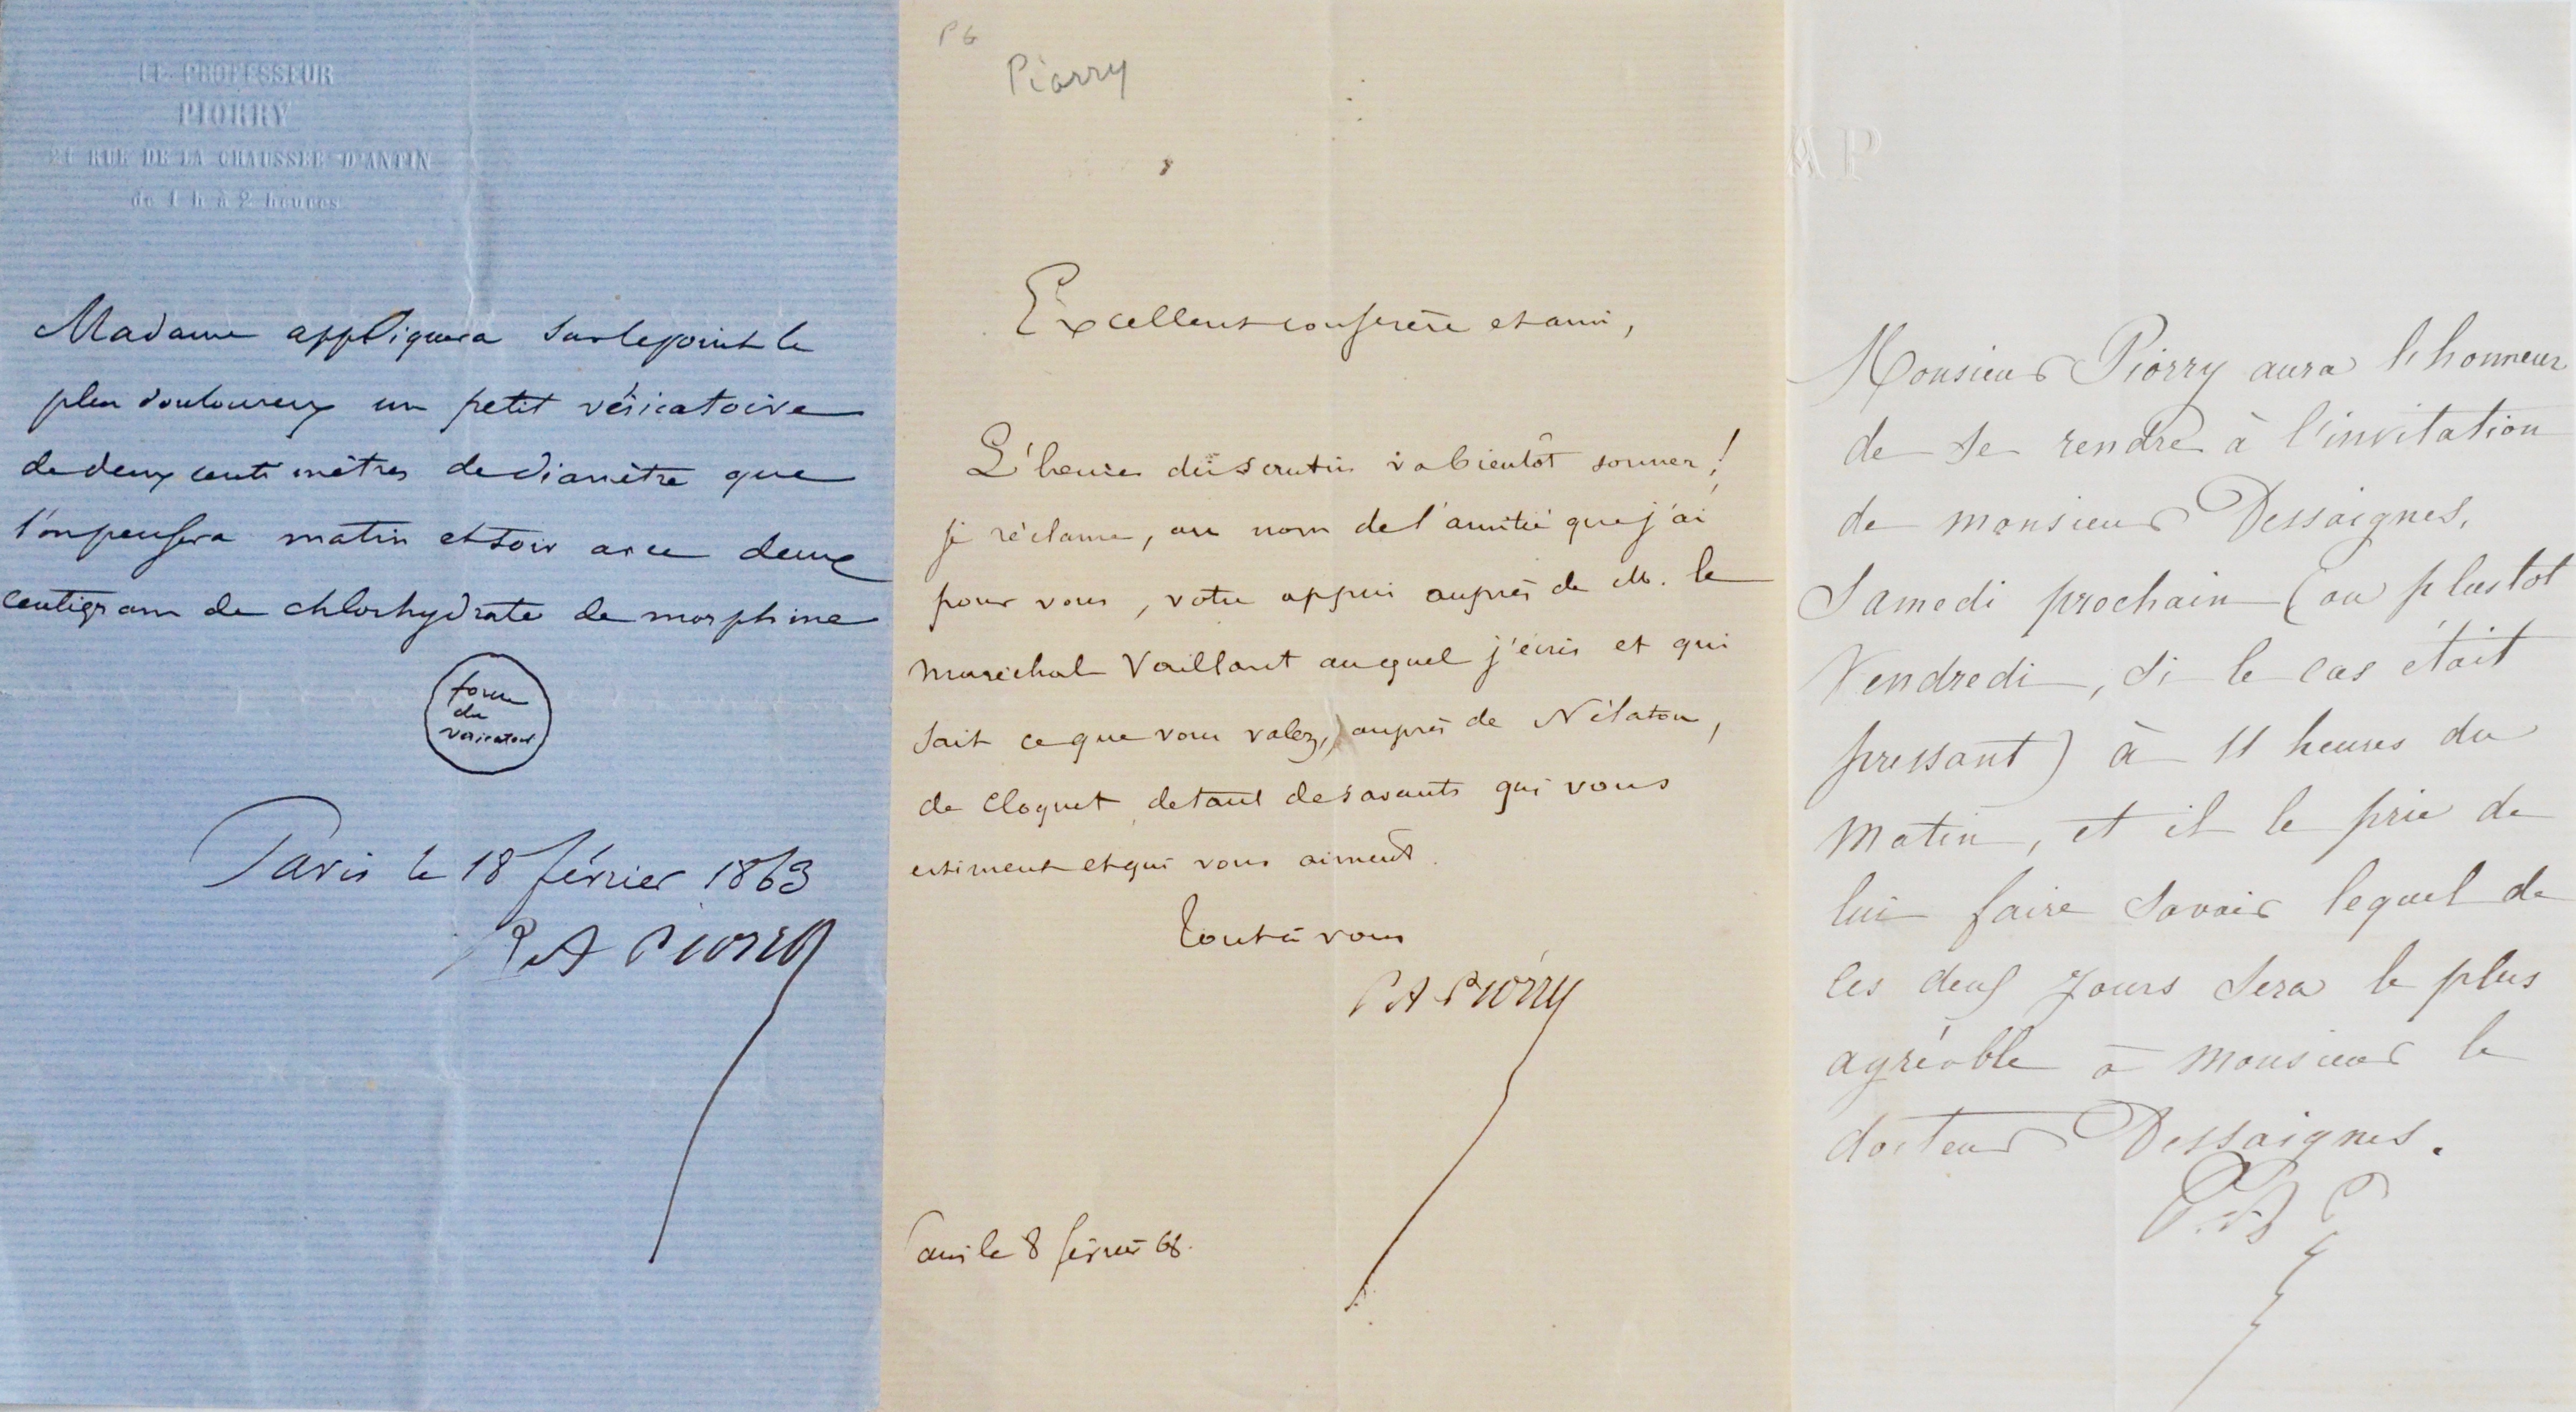 LE PROFESSEUR
PIORRY
RUE DE LA CHAUSSEE D'ANTIN
de 1 h à 2 heures
Madame appliquera sur le point le
plus douloureux un petit vésicatoire
de deux centimètres de diamètre que
l'on pansera matin et soir avec deux
centigram de chlorhydrate de morphine
forme
du
vésicatoire
Paris le 18 février 1863
P A Piorry
P6
Piorry
Excellent confrère et ami,
L'heure du scrutin va bientôt sonner !
je réclame, au nom de l'amitié que j'ai
pour vous, votre appui auprès de M. le
maréchal Vaillant auquel j'écris et qui
sait ce que vous valez, auprès de Nélaton,
de Cloquet, de tant de savants qui vous
estiment et qui vous aiment.
Tout à vous
P A Piorry
Paris le 8 février 68.
PA
Monsieur Piorry aura l'honneur
de se rendre à l'invitation
de monsieur Dessaignes,
Samedi prochain (ou plustot
Vendredi, si le cas était
pressant) à 11 heures du
matin, et il le prie de
lui faire savoir lequel de
ces deux jours sera le plus
agréable à monsieur le
docteur Dessaignes.
P.A P